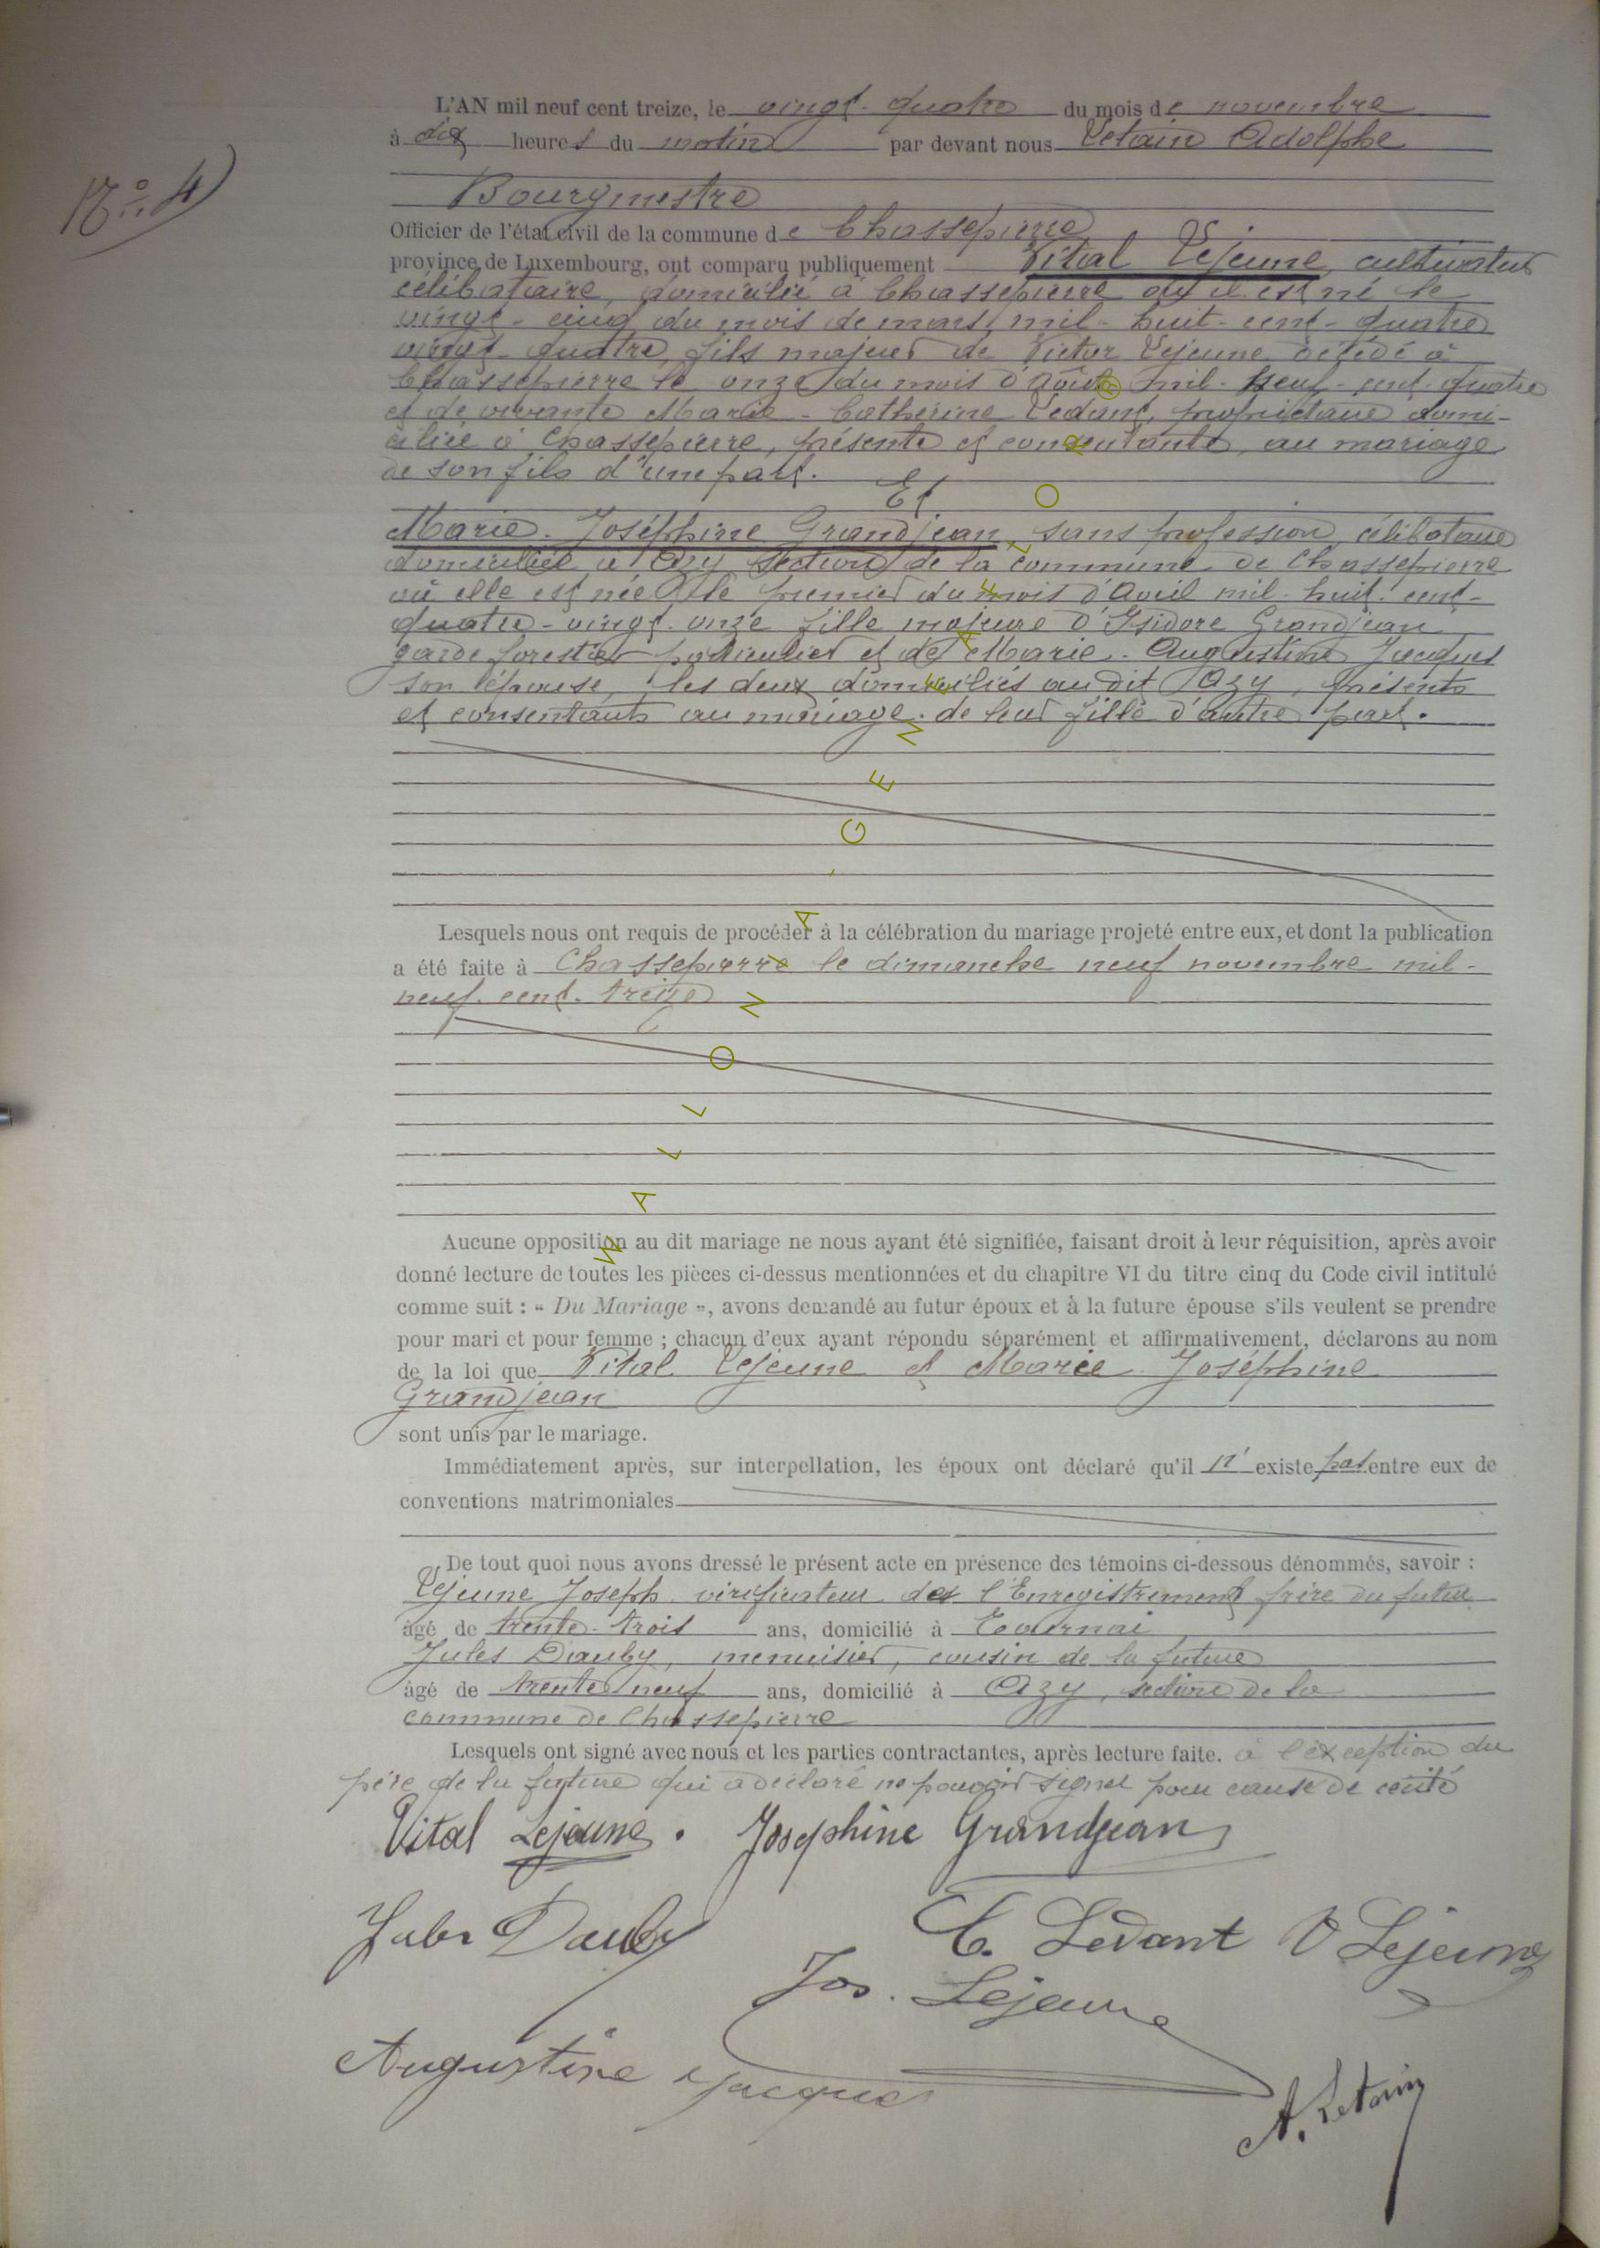 L'AN mil neuf cent treize, le vingt-quatre du mois de novembre
à dix heures du matin par devant nous Letain Adolphe
N° 4
Bourgmestre
Officier de l'état civil de la commune de Chassepierre
province de Luxembourg, ont comparu publiquement Vital Lejeune, cultivateur
célibataire, domicilié à Chassepierre où il est né le
vingt-cinq du mois de mars mil-huit-cent-quatre
vingt-quatre, fils majeur de Victor Lejeune décédé à
Chassepierre le onze du mois d'août mil-neuf-cent-quatre
et de vivante Marie-Catherine Ledant, propriétaire domi-
ciliée à Chassepierre, présente et consentante, au mariage
de son fils d'une part.
Et
Marie-Joséphine Grandjean, sans profession, célibataire
domiciliée à Azy section de la commune de Chassepierre
où elle est née le premier du mois d'avril mil-huit-cent-
quatre-vingt-onze fille majeure d'Isidore Grandjean
garde forestier particulier et de Marie-Augustine Jacques
son épouse, les deux domiciliés au dit Azy, présents
et consentants au mariage de leur fille d'autre part.
Lesquels nous ont requis de procéder à la célébration du mariage projeté entre eux, et dont la publication
a été faite à Chassepierre le dimanche neuf novembre mil-
neuf-cent-treize
Aucune opposition au dit mariage ne nous ayant été signifiée, faisant droit à leur réquisition, après avoir
donné lecture de toutes les pièces ci-dessus mentionnées et du chapitre VI du titre cinq du Code civil intitulé
comme suit : « Du Mariage », avons demandé au futur époux et à la future épouse s'ils veulent se prendre
pour mari et pour femme ; chacun d'eux ayant répondu séparément et affirmativement, déclarons au nom
de la loi que Vital Lejeune et Marie Joséphine
Grandjean
sont unis par le mariage.
Immédiatement après, sur interpellation, les époux ont déclaré qu'il n'existe pas entre eux de
conventions matrimoniales
De tout quoi nous avons dressé le présent acte en présence des témoins ci-dessous dénommés, savoir :
Lejeune Joseph vérificateur de l'Enregistrement frère du futur
âgé de trente-trois ans, domicilié à Tournai
Jules Dauby, menuisier, cousin de la future
âgé de trente neuf ans, domicilié à Azy, section de la
commune de Chassepierre
Lesquels ont signé avec nous et les parties contractantes, après lecture faite. à l'exception du
père de la future qui a déclaré ne pouvoir signer pour cause de cécité
Vital Lejeune. Joséphine Grandjean
Jules Dauby C. Ledant V Lejeune
Jos. Lejeune
Augustine Jacques
A. Letain
WALLONIA-GENEAFLOR®